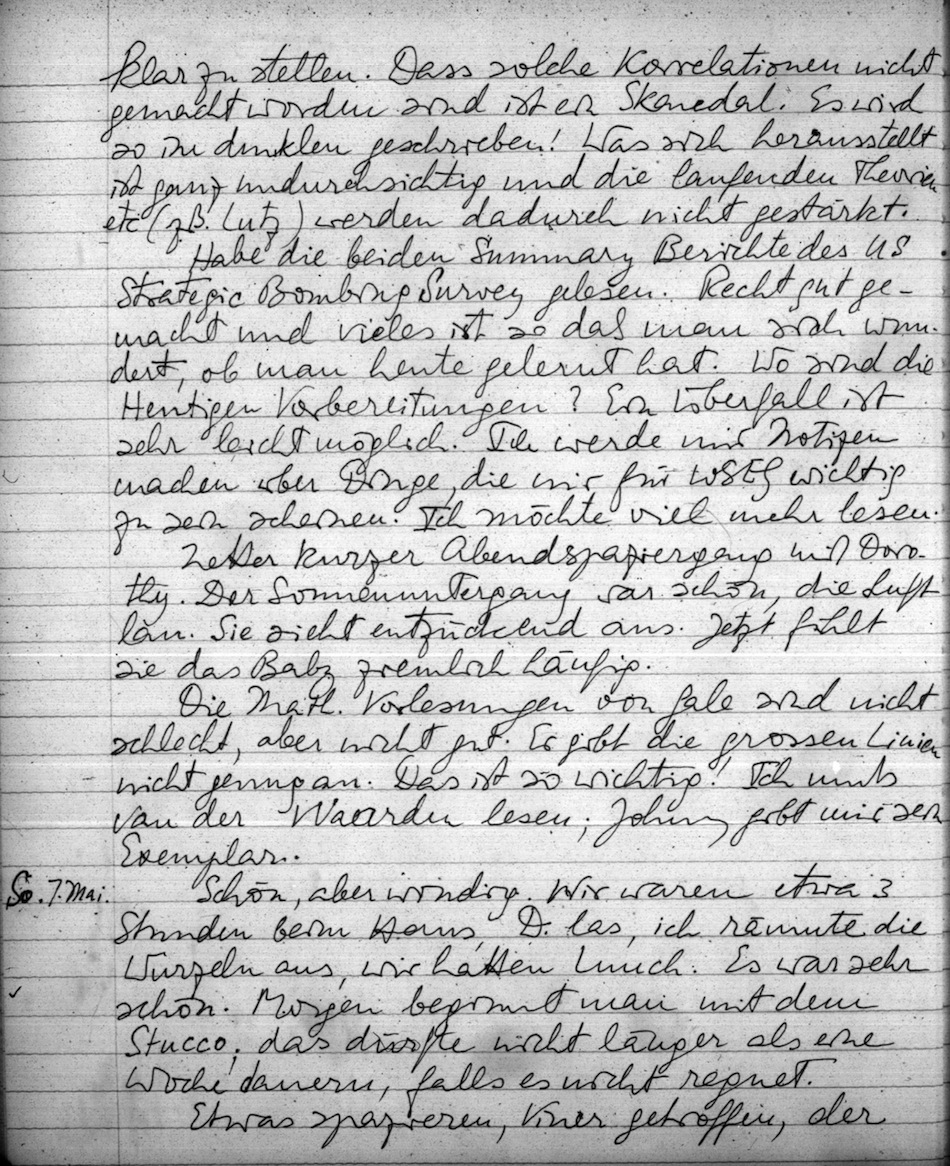 klar zu stellen. Dass solche Korrelationen nicht
gemacht worden sind ist ein Skandal. Es wird
so im dunklen geschrieben! Was sich herausstellt
ist ganz undurchsichtig und die laufenden Theorien
etc (zB. Lutz) werden dadurch nicht gestärkt.
Habe die beiden Summary Berichte des US
Strategic Bombing Survey gelesen. Recht gut ge-
macht und vieles ist so daß man sich wun-
dert, ob man heute gelernt hat. Wo sind die
Heutigen Vorbereitungen? Ein Überfall ist
sehr leicht möglich. Ich werde mir Notizen
machen über Dinge, die mir für WSEG wichtig
zu sein scheinen. Ich möchte viel mehr lesen.
Netter kurzer Abendspaziergang mit Doro-
thy. Der Sonnenuntergang war schön, die Luft
lau. Sie sieht entzückend aus. Jetzt fühlt
sie das Baby ziemlich häufig.
Die Math. Vorlesungen von Gale sind nicht
schlecht, aber nicht gut. Er gibt die grossen Linien
nicht genug an. Das ist so wichtig! Ich muß
van der Waarden lesen; Johnny gibt mir sein
Exemplar.
So. 7. Mai. Schön, aber windig. Wir waren etwa 3
Stunden beim Haus, D. las, ich räumte die
Wurzeln aus, wir hatten Lunch. Es war sehr
schön. Morgen beginnt man mit dem
Stucco; das dürfte nicht länger als eine
Woche dauern, falls es nicht regnet.
Etwas spazieren, Viner getroffen, der